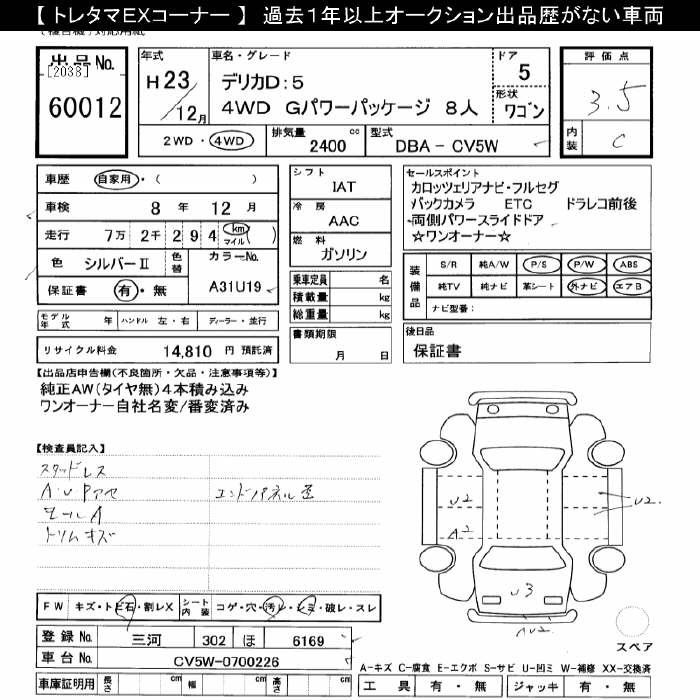 【 トレタマEXコーナー 】 過去1年以上オークション出品歴がない車両
出品No.
[2038]
60012
年式
H23/12月
車名・グレード
デリカD:5
4WD Gパワーパッケージ 8人
ドア
5
形状
ワゴン
評価点
3.5
内装
C
2WD・4WD
排気量 2400 cc
型式 DBA-CV5W
車歴 自家用・( )
車検 8年 12月
走行 7万 2千 2 9 4 km マイル( )
色 シルバーⅡ
色替
カラーNo.
A31U19
保証書 有・無
シフト
IAT
冷房
AAC
燃料
ガソリン
乗車定員 名
積載量 kg
総重量 kg
セールスポイント
カロッツェリアナビ・フルセグ
バックカメラ ETC ドラレコ前後
両側パワースライドドア
☆ワンオーナー☆
装備品
S/R 純A/W P/S P/W ABS
純TV 純ナビ 革シート 外ナビ エアB
ナビ型番:
モデル年式 年 ハンドル 左・右 ディーラー・並行
リサイクル料金 14,810 円 預託済
書類期限
月 日
後日品
保証書
【出品店申告欄(不良箇所・欠品・注意事項等)】
純正AW(タイヤ無)4本積み込み
ワンオーナー自社名変/番変済み
【検査員記入】
スタッドレス
エンドパネル歪
モールA
トリムキズ
U2
A2
U2
U3
AU2
スペア
FW キズ・トビ石・割レX
シート内装 コゲ・穴・汚レ・シミ・破レ・スレ
登録No. 三河 302 ほ 6169
車台No. CV5W-0700226
車庫証明用 長さ cm 幅 cm 高さ cm
A-キズ C-腐食 E-エクボ S-サビ U-凹ミ W-補修 XX-交換済
工具 有・無 ジャッキ 有・無